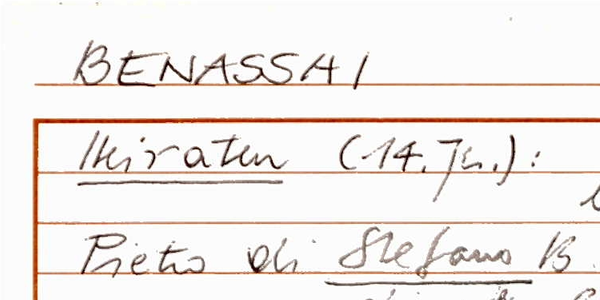 BENASSAI
Heiraten (14. Jh.):
Pietro di Stefano B.